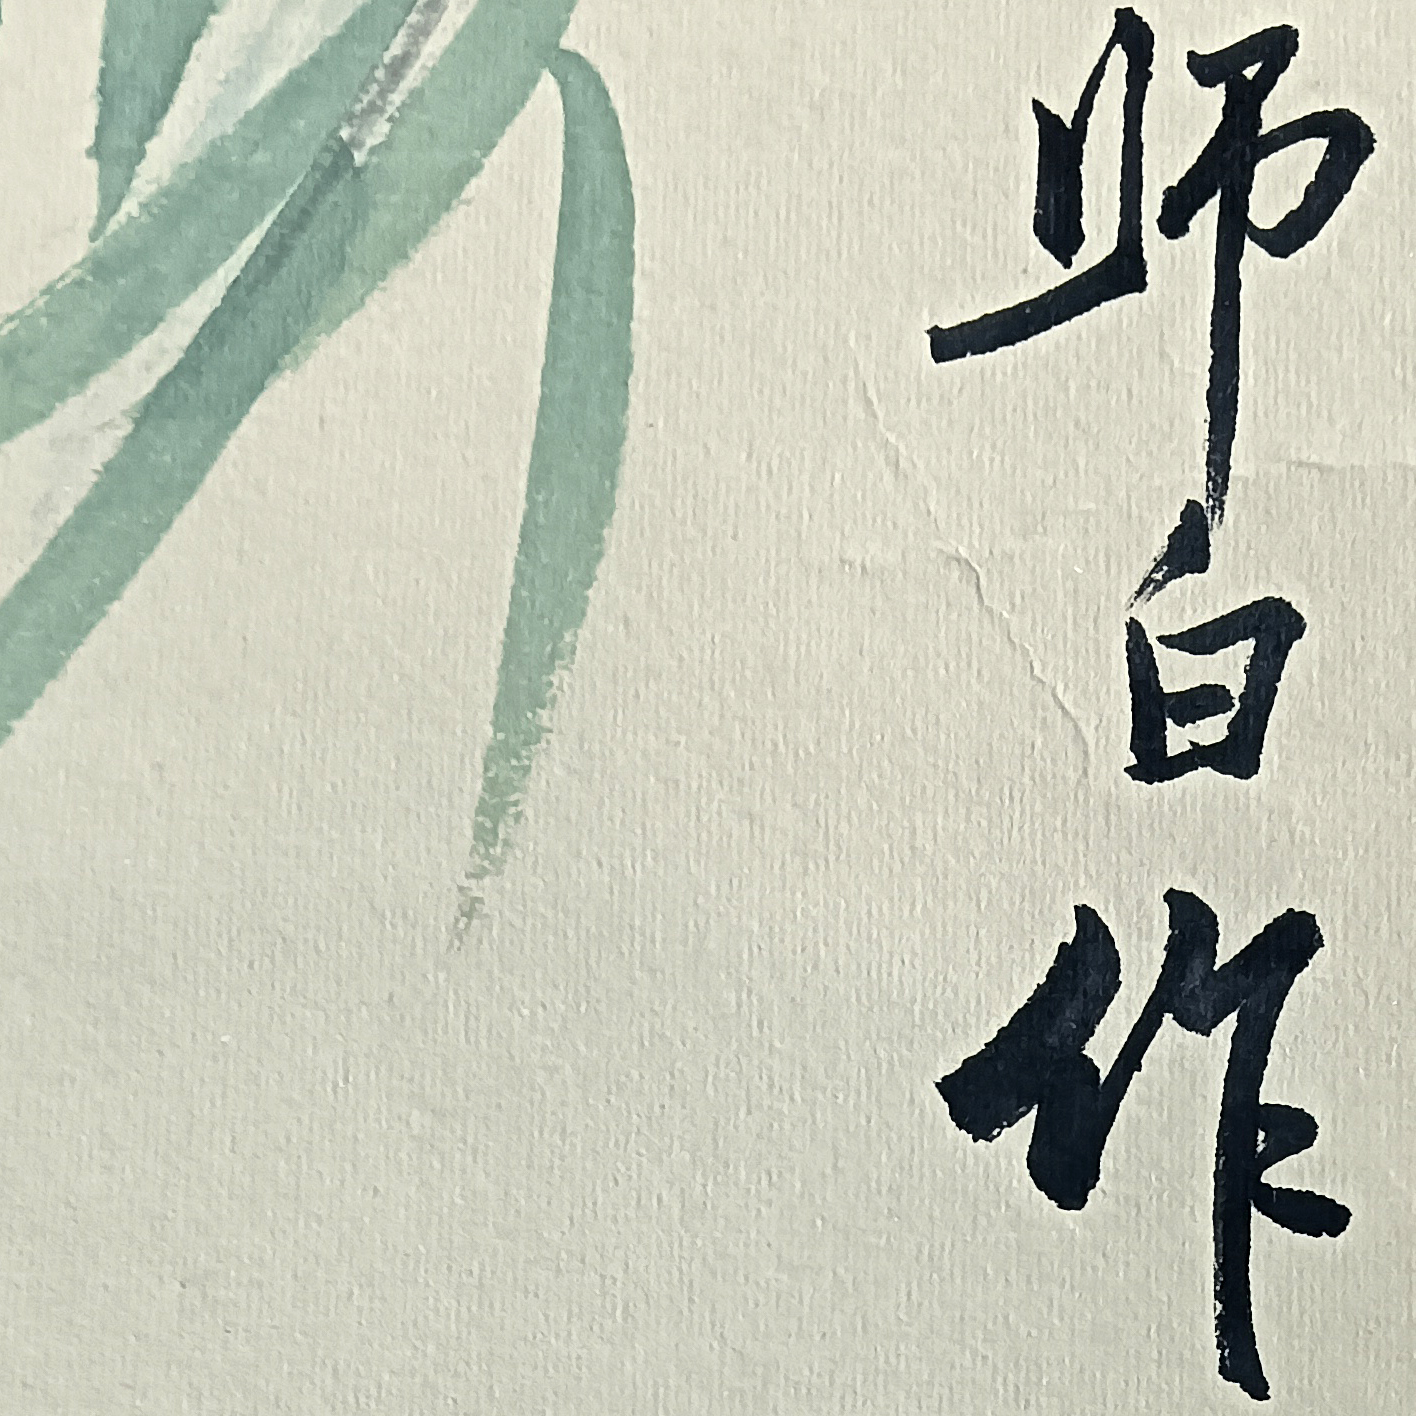 师白作